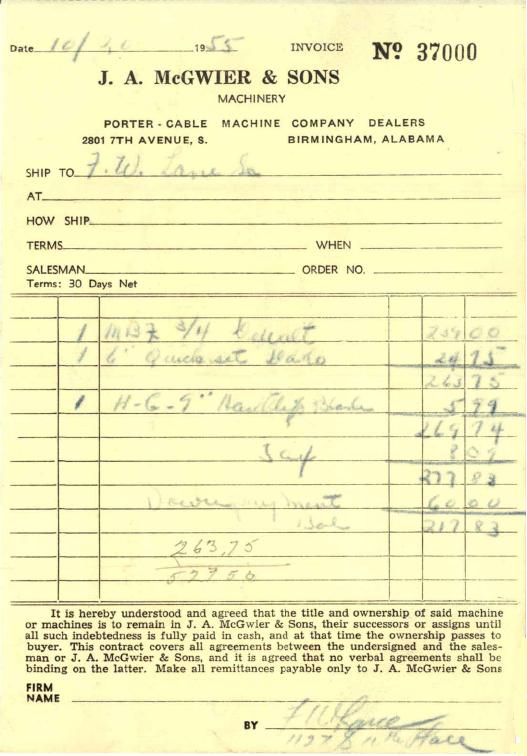 Date 10/20 1955 INVOICE Nº 37000
J. A. McGWIER & SONS
MACHINERY
PORTER-CABLE MACHINE COMPANY DEALERS
2801 7TH AVENUE, S. BIRMINGHAM, ALABAMA
SHIP TO F. W. Lane
AT
HOW SHIP
TERMS WHEN
SALESMAN ORDER NO.
Terms: 30 Days Net
1 MBF 3/4 Dewalt 239 00
1 6" Quickset Dado 24 75
263 75
1 H-G-9" Blade 5 99
269 74
Tax 8 09
277 83
Down payment 60 00
Bal 217 83
263,75
527 50
It is hereby understood and agreed that the title and ownership of said machine
or machines is to remain in J. A. McGwier & Sons, their successors or assigns until
all such indebtedness is fully paid in cash, and at that time the ownership passes to
buyer. This contract covers all agreements between the undersigned and the sales-
man or J. A. McGwier & Sons, and it is agreed that no verbal agreements shall be
binding on the latter. Make all remittances payable only to J. A. McGwier & Sons
FIRM
NAME
BY F W Lane
1127 S 11th Place